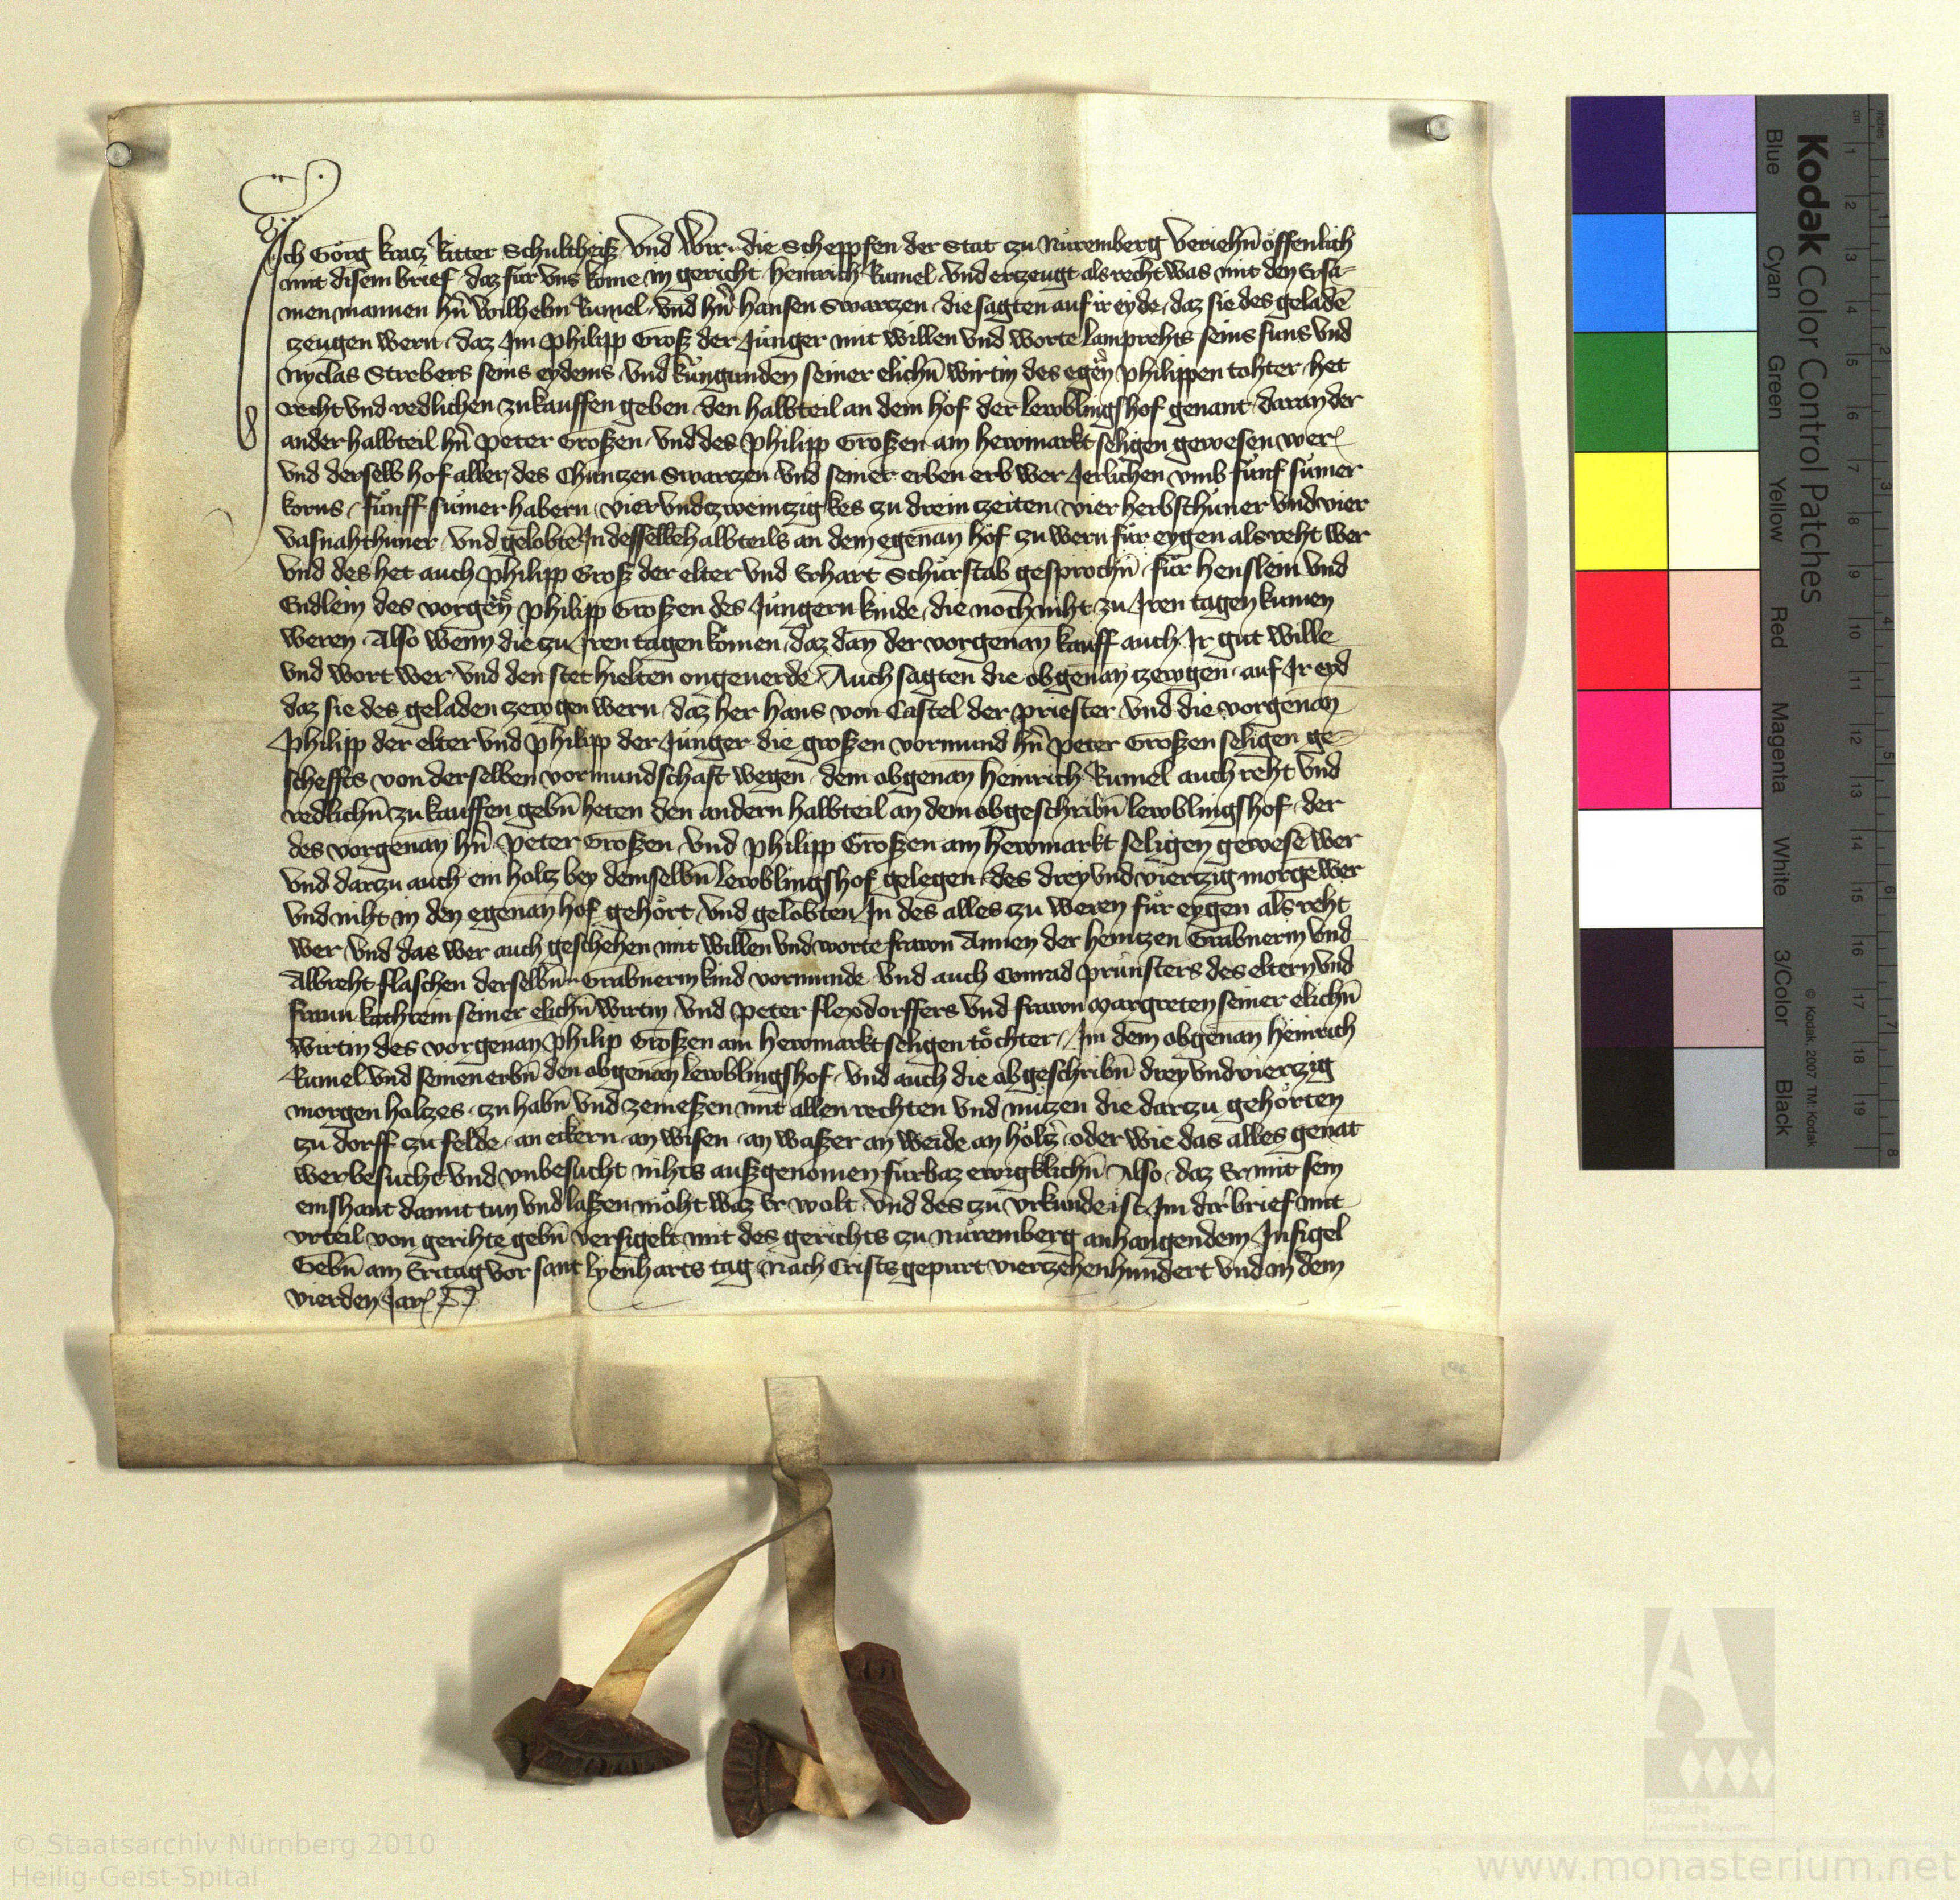 Ich Görg kratz Ritter Schultheiß vnd Wir die Scheppfen der Stat zu Nüremberg veriehn̄ offenlich
mit disem brief daz für vns kome in gericht Heinrich Rumel vnd ertzeugt als recht was mit den Ersa-
men mannen hn̄ Wilhelm Rumel vnd hn̄ hansen Swartzen die sagten auf ir eyde daz sie des geladē
tzeugen wern daz Im Philipp Groß der Jünger mit willen vnd worte lamprehts seins suns vnd
Nyclas Strebers seins eydems vnd küngunden seiner elichn̄ wirtin des egen̄ philippen tohter het
recht vnd redlichen zu kauffen geben den halbteil an dem hof der lewblingshof genant daran der
ander halbteil hn̄ Peter Großen vnd des Philipp Großen am hewmarkt seligen gewesen wer
vnd derselb hof aller des Chuntzen Swartzen vnd seiner erben erb wer Jerlichen vmb fünf sümer
korns fünff sümer habern vier vnd zweintzig kes zu drein zeiten vier herbsthüner vnd vier
vasnahthuner vnd gelobtē In desselbē halbteils an dem egenan̄ hof zu wern für eygen als reht wer
vnd des het auch Philipp Groß der elter vnd Erhart Schürstab gesprochn̄ für henslein vnd
Endlein des vorgen̄ Philipp Großen des Jüngern kinde die noch niht zu Iren tagen kumen
weren Also wenn die zu Iren tagen komen daz dan̄ der vorgenan̄ kauff auch Ir gut wille
vnd wort wer vnd den stet hielten ongeuerde Auch sagten die obgenan̄ tzewgen auf Ir eyd
daz sie des geladen tzewgen wern daz her hans von Castel der priester vnd die vorgenan̄
Philipp der elter vnd Philipp der Jünger die großen vormund hn̄ Peter Großen seligen ge-
scheffts von derselben vormundschaft wegen dem obgenan̄ Heinrich Rumel auch reht vnd
redlichn̄ zu kauffen gebn̄ heten den andern halbteil an dem obgeschribn̄ lewblingshof der
des vorgenan̄ hn̄ Peter Großen vnd Philipp Großen am hewmarkt seligen gewesē wer
vnd dartzu auch ein holtz bey demselbn̄ lewblingshof gelegen des drey vnd viertzig morgē wer
vnd niht in den egenan̄ hof gehört vnd gelobten In des alles zu weren für eygen als reht
wer vnd das wer auch geschehen mit willen vnd worte frawn Annen der heintzen Grabnerin vnd
Albreht flaschen derselbn̄ Grabnerin kind vormunde vnd auch Conrad Prünsters des eltern vnd
frawn kathrein seiner elichn̄ wirtin vnd Peter flexdorffers vnd frawn Margreten seiner elichn̄
wirtin des vorgenan̄ Philip Großen am hewmarkt seligen töchter Im dem obgenan̄ Heinrich
Rumel vnd seinen erbn̄ den obgenan̄ lewblingshof vnd auch die obgeschribn̄ drey vnd viertzig
morgen holtzes zu habn̄ vnd zenießen mit allen rechten vnd nützen die dartzu gehörten
zu dorff zu felde an eckern an wisen an waßer an weide an höltz oder wie das alles genāt
wer besucht vnd vnbesucht nihts außgenomen fürbaz ewigklichn̄ Also daz Er mit sein
einshant damit tun vnd laßen möht waz Er wolt vnd des zu vrkunde ist Im dir̄ brief mit
vrteil von gerihte gebn̄ versigelt mit des gerichts zu Nüremberg anhangendem Insigel
Gebn̄ am Eritag vor sant lyenharts tag Nach Crists gepurt viertzehenhundert vnd in dem
vierden Jar
Kodak Color Control Patches
Blue
Cyan
Green
Yellow
Red
Magenta
White
3/Color
Black
© Kodak, 2007 TM: Kodak
cm 1 2 3 4 5 6 7 8 9 10 11 12 13 14 15 16 17 18 19
inches 1 2 3 4 5 6 7 8
© Staatsarchiv Nürnberg 2010
Heilig-Geist-Spital
Staatliche
Archive Bayerns
www.monasterium.net